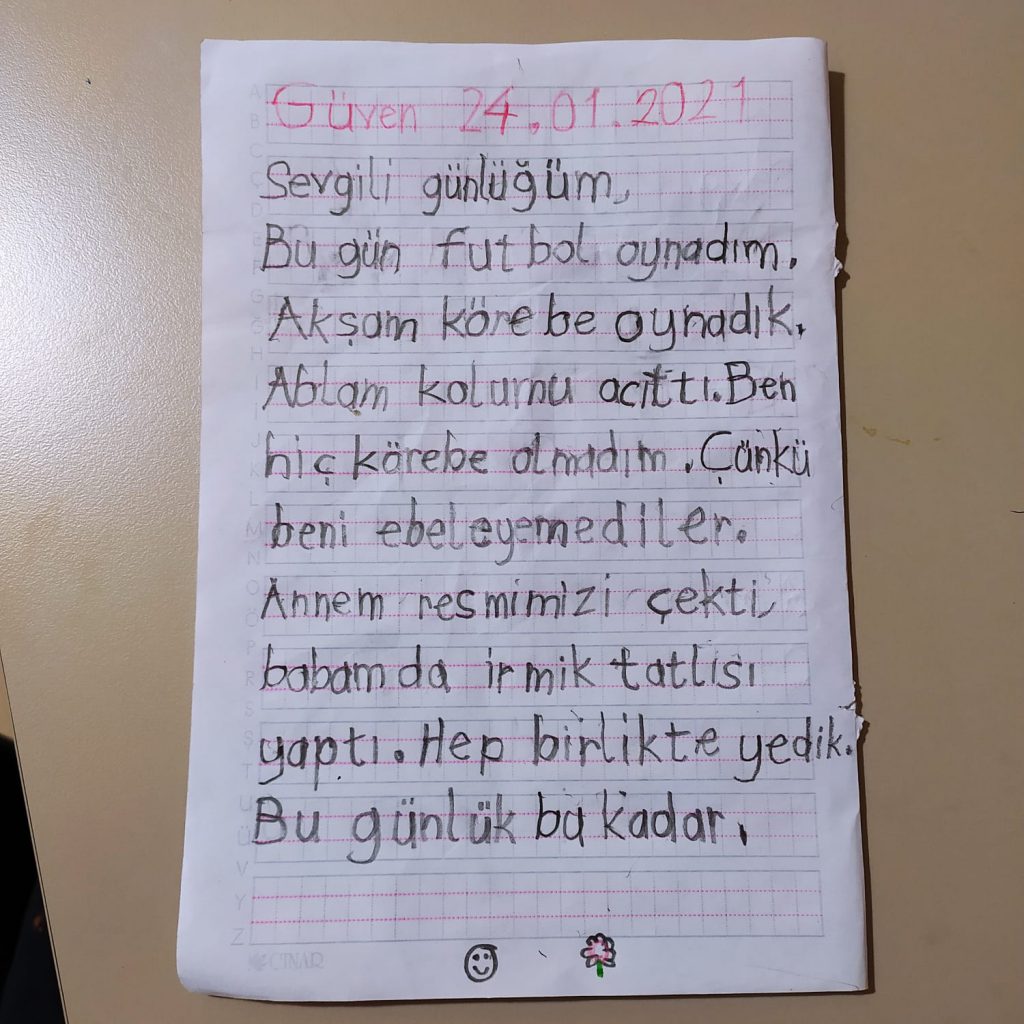 Güven 24.01.2021
Sevgili günlüğüm,
Bu gün futbol oynadım.
Akşam körebe oynadık.
Ablam kolumu acıttı. Ben
hiç körebe olmadım. Çünkü
beni ebeleyemediler.
Annem resmimizi çekti,
babam da irmik tatlısı
yaptı. Hep birlikte yedik.
Bu günlük bu kadar.
ÇINAR